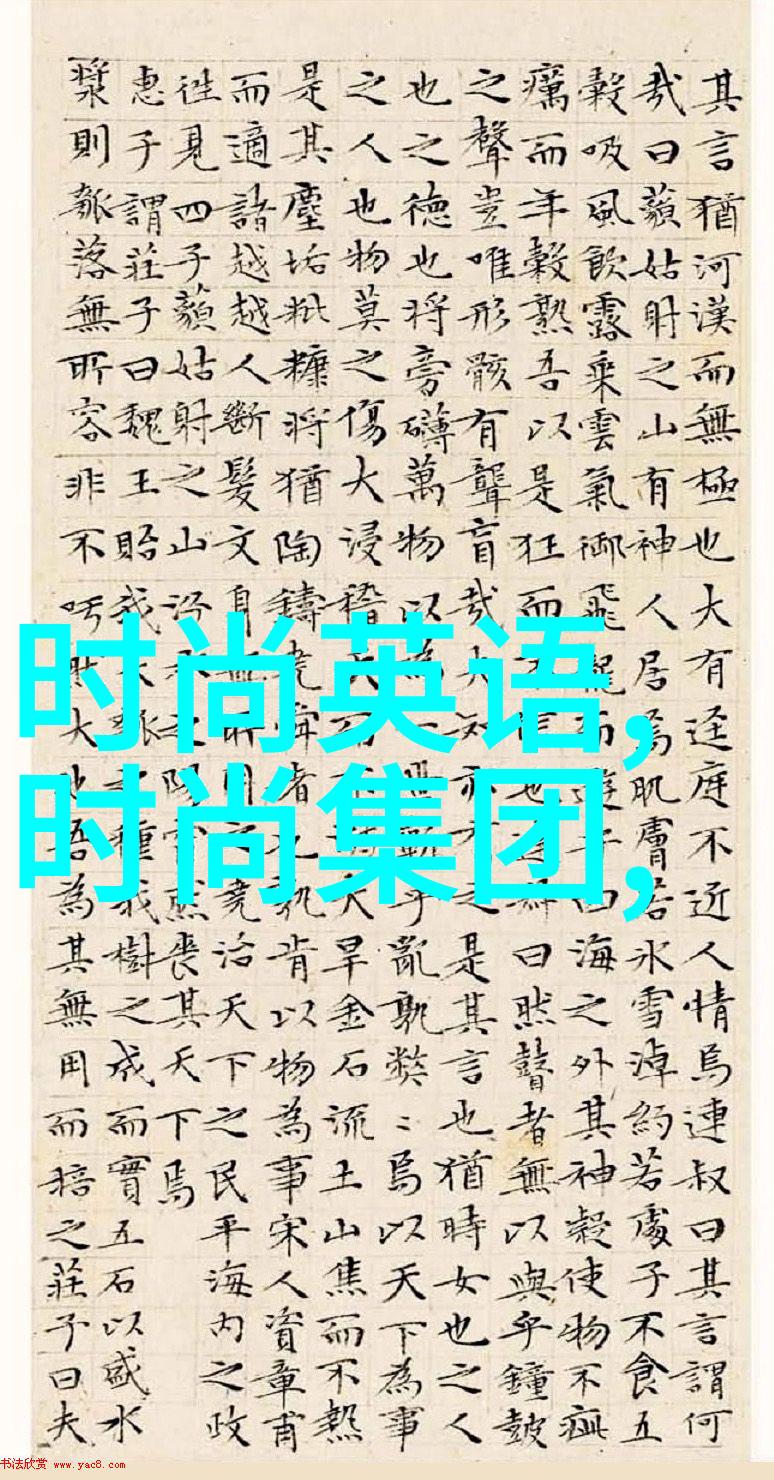 其言猶河漢而無極也大有迳庭不近人情焉連叔曰其言謂何
哉曰藐姑射之山有神人居焉肌膚若冰雪淖約若處子不食五
穀吸風飲露乘雲氣御飛龍而遊乎四海之外其神凝使物不疵
癘而年穀熟吾以是狂而不信也連叔曰然瞽者無以與乎鐘鼓
之聲豈唯形骸有聾盲哉夫知亦有之是其言也猶時女也之人
也之德也將旁礴萬物以為一世蘄乎亂孰弊〻焉以天下為事
之人也物莫之傷大浸稽天而不溺大旱金石流土山焦而不熱
是其塵垢粃糠將猶陶鑄堯舜者也孰肯以物為事宋人資章甫
而適諸越越人斷髮文身無所用之堯治天下之民平海內之政
往見四子藐姑射之山汾水之陽窅然喪其天下焉
惠子謂莊子曰魏王貽我大瓠之種我樹之成而實五石以盛水
漿則瓠落無所容非不呺然大也吾為其無用而掊之莊子曰夫
时尚英语,
时尚集团,
书法欣赏 www.yac8.com